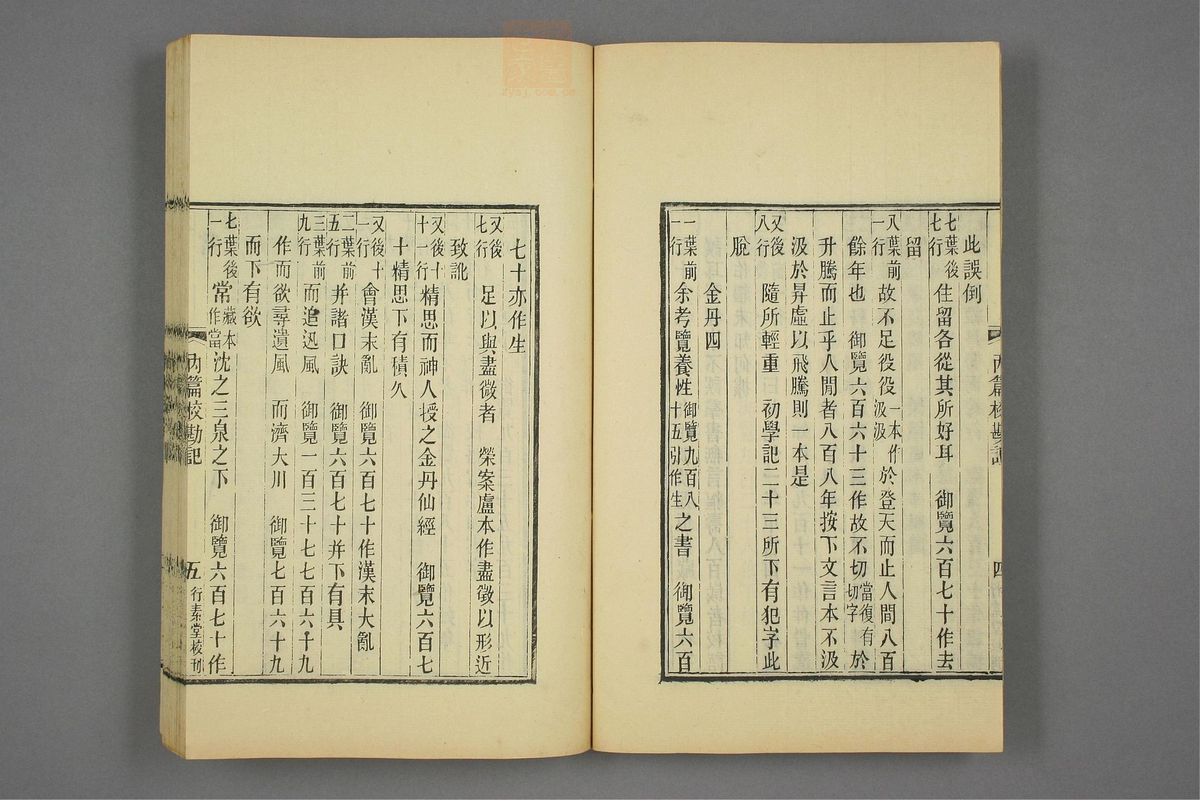 此誤倒
七葉後七行 住留各從其所好耳　御覽六百七十作去
留
八葉前一行 故不足役役一本作汲汲於登天而止人間八百
餘年也　御覽六百六十三作故不切當復有切字於
升騰而止乎人閒者八百八年按下文言本不汲
汲於昇虛以飛騰則一本是
又後八行 隨所輕重　初學記二十三所下有犯字此
脫
金丹四
一葉前一行 余考覽養性御覽九百八十五引作生之書　御覽六百
內篇校勘記
四
七十亦作生
又後七行 足以與盡微者　榮案盧本作盡徵以形近
致訛
又後十一行 精思而神人授之金丹仙經　御覽六百七
十精思下有積久
又後十一行 會漢末亂　御覽六百七十作漢末大亂
二葉前五行 并諸口訣　御覽六百七十并下有具
三葉前九行 而追迅風　御覽一百三十七七百六十九
作而欲尋遺風　而濟大川　御覽七百六十九
而下有欲
七葉後一行 常藏本作當沈之三泉之下　御覽六百七十作
內篇校勘記
五
行素堂校刊